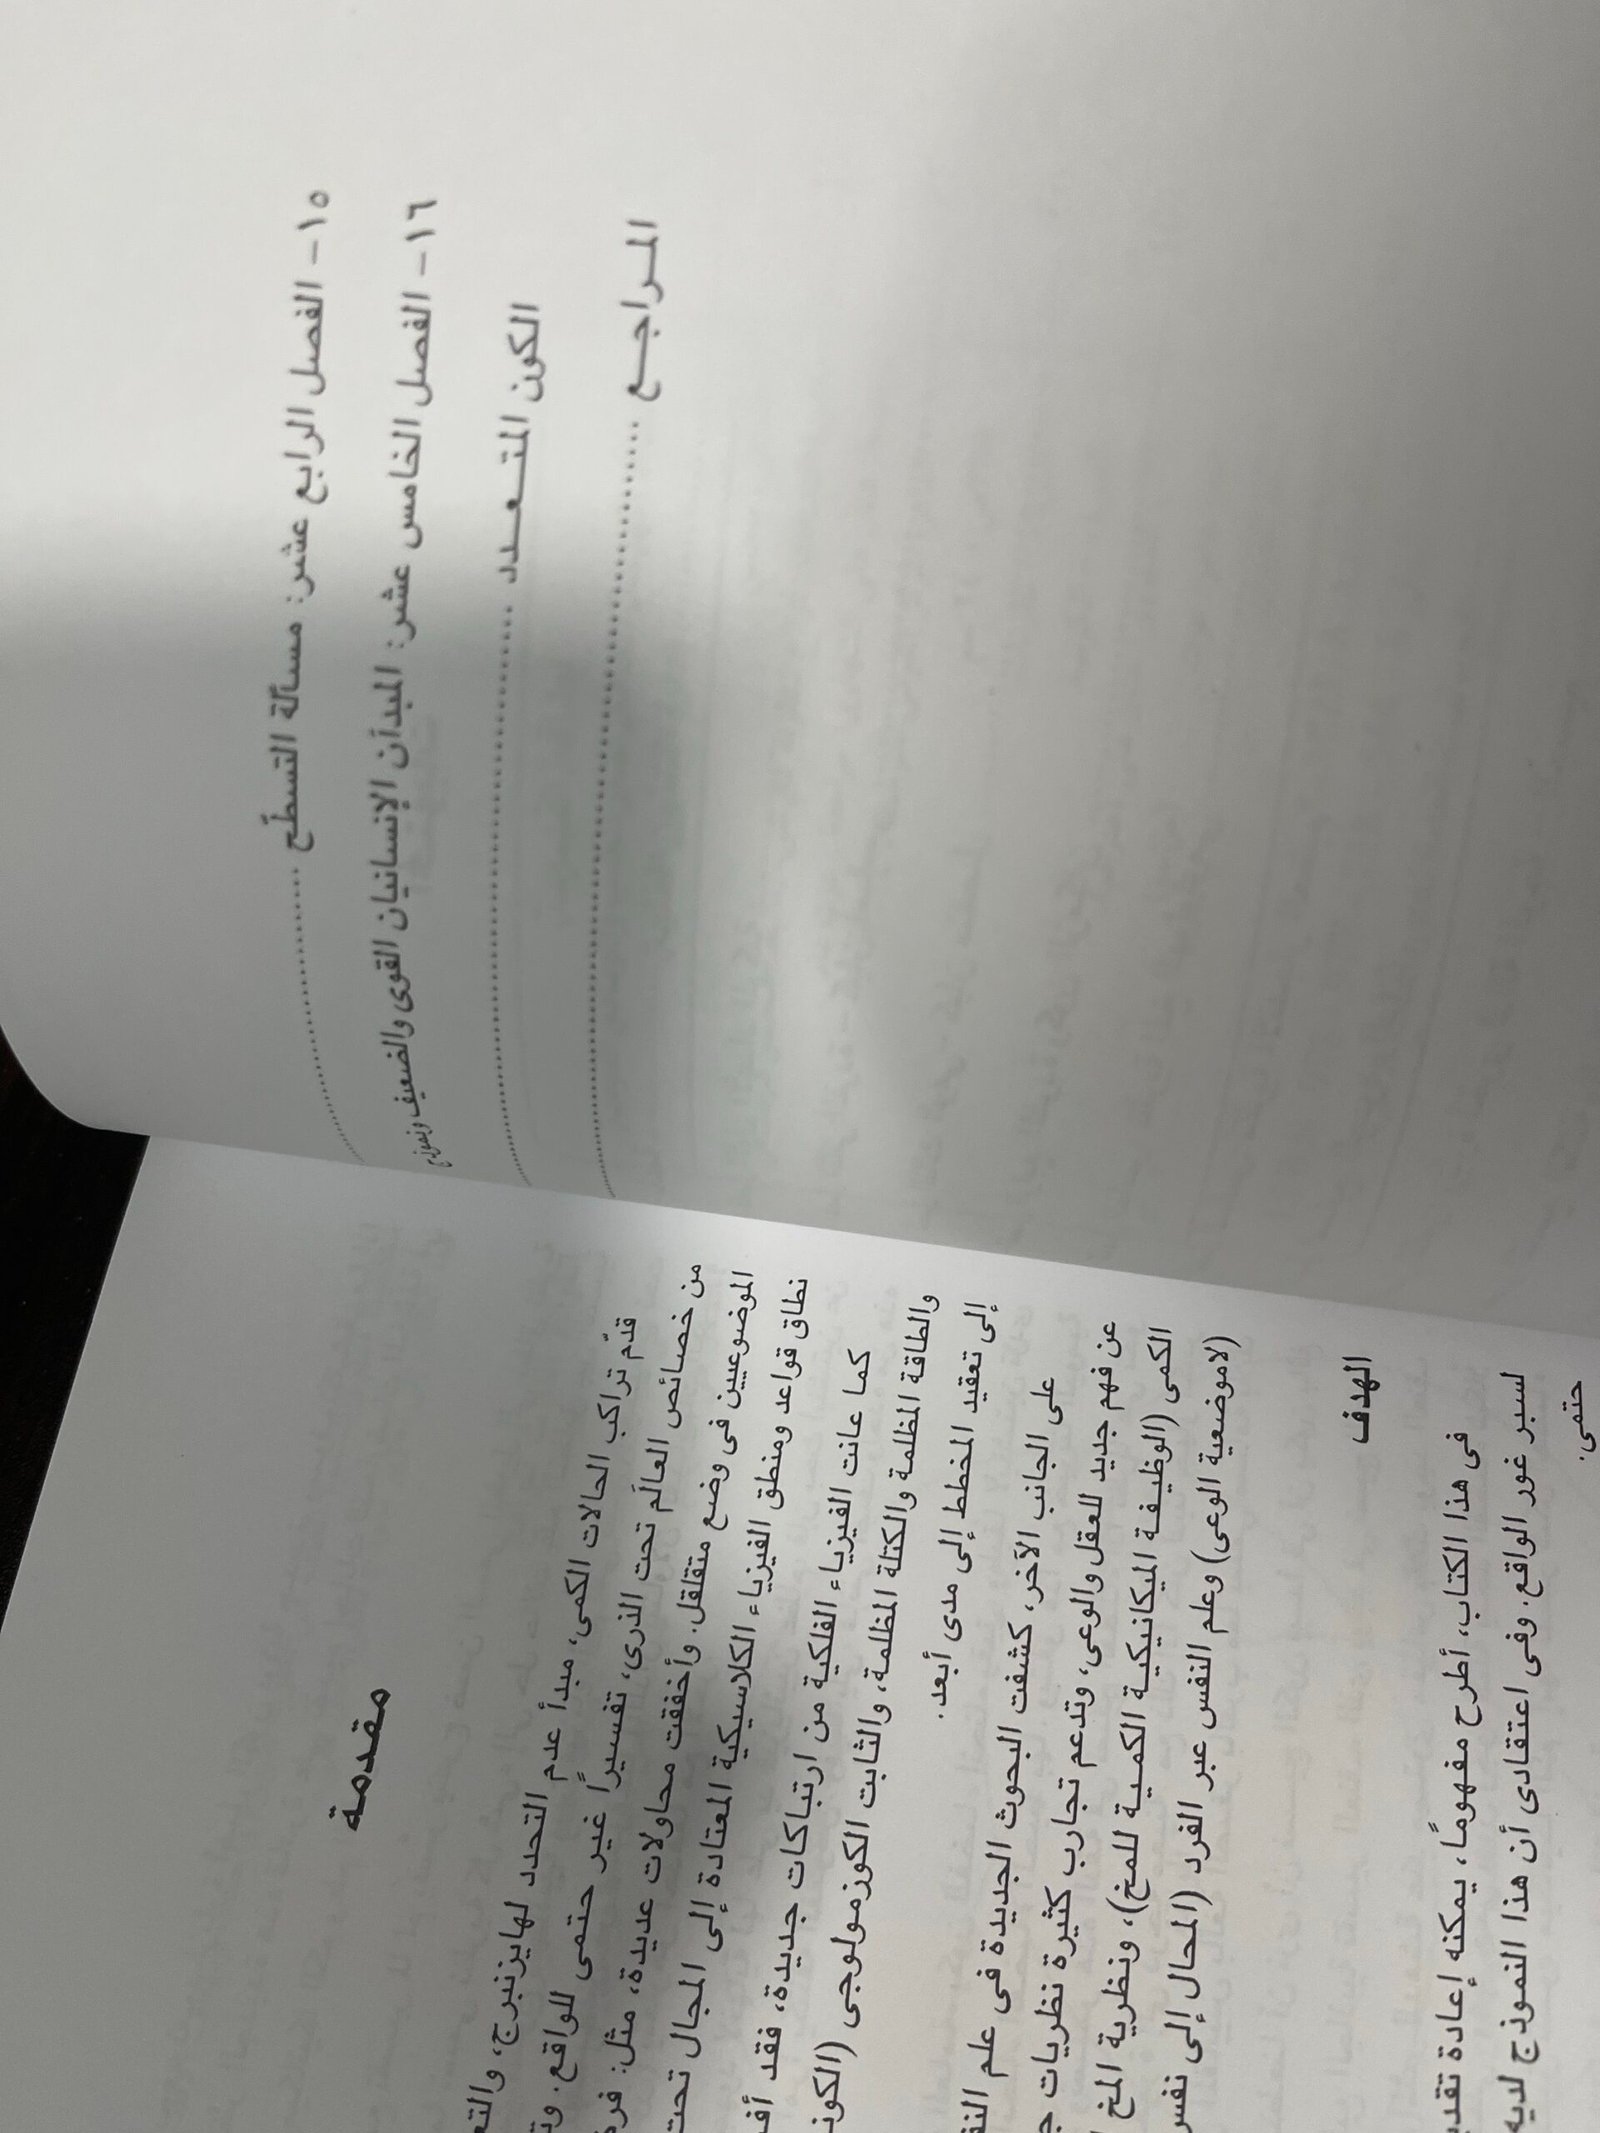 ١٥- الفصل الرابع عشر: مسألة التسطّح ........................
١٦- الفصل الخامس عشر: المبدآن الإنسانيان القوى والضعيف ونموذج
الكون المتعدد ........................
المراجع ........................
مقدمة
قدّم تراكب الحالات الكمى، مبدأ عدم التحدد لهايزنبرج،
من خصائص العالَم تحت الذرى، تفسيرًا غير حتمى للواقع.
الموضوعيين فى وضع متقلقل. وأخفقت محاولات عديدة، مثل:
نطاق قواعد ومنطق الفيزياء الكلاسيكية المعتادة إلى المجال تحت
كما عانت الفيزياء الفلكية من ارتباكات جديدة، فقد
والطاقة المظلمة والكتلة المظلمة، والثابت الكوزمولوجى
إلى تعقيد المخطط إلى مدى أبعد.
على الجانب الآخر، كشفت البحوث الجديدة فى علم
عن فهم جديد للعقل والوعى، وتدعم تجارب كثيرة نظريات
الكمى (الوظيفة الميكانيكية الكمية للمخ)، ونظرية المخ
(لاموضعية الوعى) وعلم النفس عبر الفرد (المحال إلى
الهدف
فى هذا الكتاب، أطرح مفهومًا، يمكنه إعادة
لسبر غور الواقع. وفى اعتقادى أن هذا النموذج لديه
حتمى.